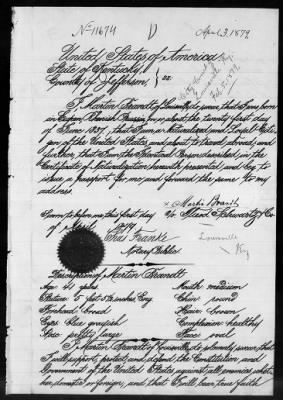 No 11674
April 3, 1879
United States of America
State of Kentucky
County of Jefferson, } ss:
I, Martin Brandt of Louisville, do swear, that I am born
in Prussia, on about the twenty first day
of June 1837, that I am a Naturalized and Loyal Citi-
zen of the United States, and about to travel abroad, and
further, that I am the Identical Person described in the
Certificate of Naturalization herewith presented and beg to
issue a passport for me and forward the same to my
address
x Martin Brandt
Sworn to before me this first day
of April 1879
c/o Schwartz & Co
Louisville
Ky
Franke
Notary Public
Description of Martin Brandt
Age 41 years
Mouth medium
Stature 5 feet inches, Eng
Chin round
Forehead broad
Hair brown
Eyes blue greyish
Complexion healthy
Nose large
Face oval
I, Martin Brandt of Louisville do solemnly swear, that
I will support, protect, and defend the Constitution and
Government of the United States against all enemies, wheth-
er domestic or foreign, and that I will bear true faith